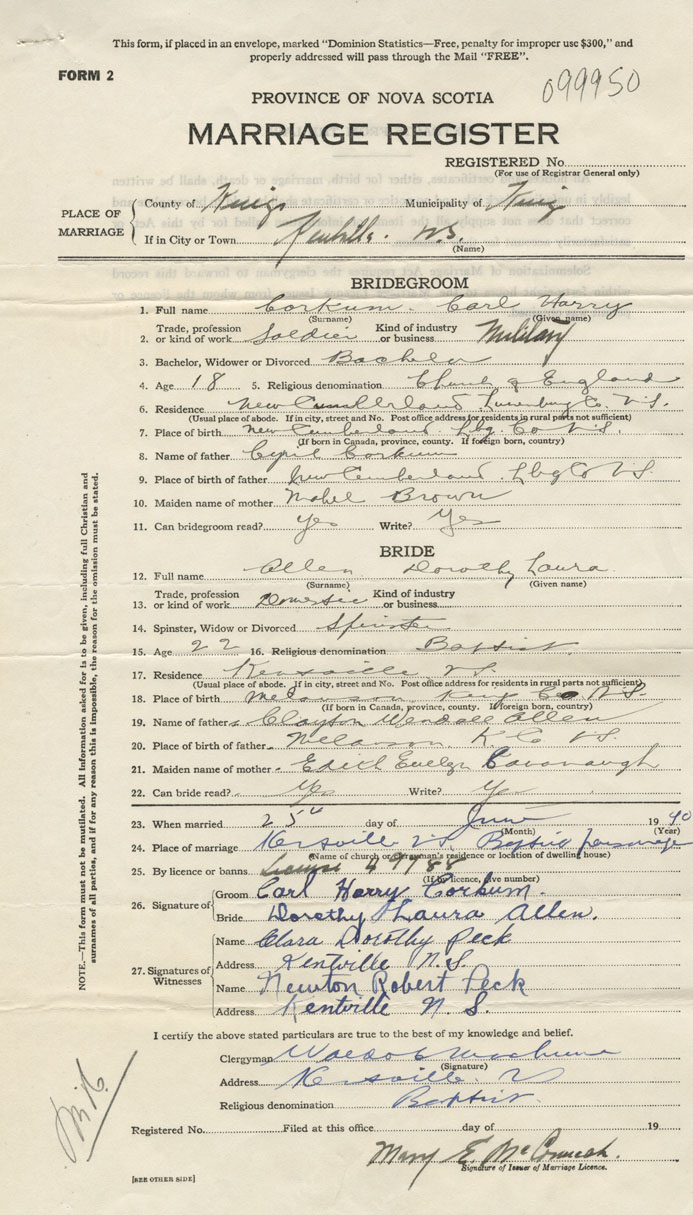 This form, if placed in an envelope, marked "Dominion Statistics—Free, penalty for improper use $300," and
properly addressed will pass through the Mail "FREE".
FORM 2
099950
PROVINCE OF NOVA SCOTIA
MARRIAGE REGISTER
REGISTERED No.
(For use of Registrar General only)
PLACE OF MARRIAGE
County of Kings Municipality of King
If in City or Town Kentville. N.S.
(Name)
BRIDEGROOM
1. Full name Corkum. Carl Harry
(Surname) (Given name)
2. Trade, profession or kind of work Soldier Kind of industry or business Military
3. Bachelor, Widower or Divorced Bachelor
4. Age 18 5. Religious denomination Church of England
6. Residence New Cumberland. Lunenburg Co. N.S.
(Usual place of abode. If in city, street and No. Post office address for residents in rural parts not sufficient)
7. Place of birth New Cumberland. Lbg. Co N.S.
(If born in Canada, province, county. If foreign born, country)
8. Name of father Cyril Corkum
9. Place of birth of father New Cumberland. Lbg Co N.S.
10. Maiden name of mother Mabel Brown
11. Can bridegroom read? Yes Write? Yes
BRIDE
12. Full name Allen Dorothy Laura
(Surname) (Given name)
13. Trade, profession or kind of work Domestic Kind of industry or business
14. Spinster, Widow or Divorced Spinster
15. Age 22 16. Religious denomination Baptist
17. Residence Kentville N.S.
(Usual place of abode. If in city, street and No. Post office address for residents in rural parts not sufficient)
18. Place of birth Melanson King Co N.S.
(If born in Canada, province, county. If foreign born, country)
19. Name of father Clayton Wendall Allen
20. Place of birth of father Melanson. K. Co N.S.
21. Maiden name of mother Edith Evelyn Cavanaugh
22. Can bride read? Yes Write? Yes
23. When married 25th day of June 1940
(Month) (Year)
24. Place of marriage Kentville N.S. Baptist parsonage
(Name of church or clergyman's residence or location of dwelling house)
25. By licence or banns License 49188
(If by licence, give number)
26. Signature of
Groom Carl Harry Corkum.
Bride Dorothy Laura Allen.
27. Signatures of Witnesses
Name Clara Dorothy Peck
Address Kentville N.S.
Name Newton Robert Peck
Address Kentville N.S.
I certify the above stated particulars are true to the best of my knowledge and belief.
Clergyman
(Signature)
Address Kentville. N
Religious denomination Baptist.
Registered No. Filed at this office day of 19
Mary E. McCormick.
Signature of Issuer of Marriage Licence.
[SEE OTHER SIDE]
NOTE.—This form must not be mutilated. All information asked for is to be given, including full Christian and
surnames of all parties, and if for any reason this is impossible, the reason for the omission must be stated.